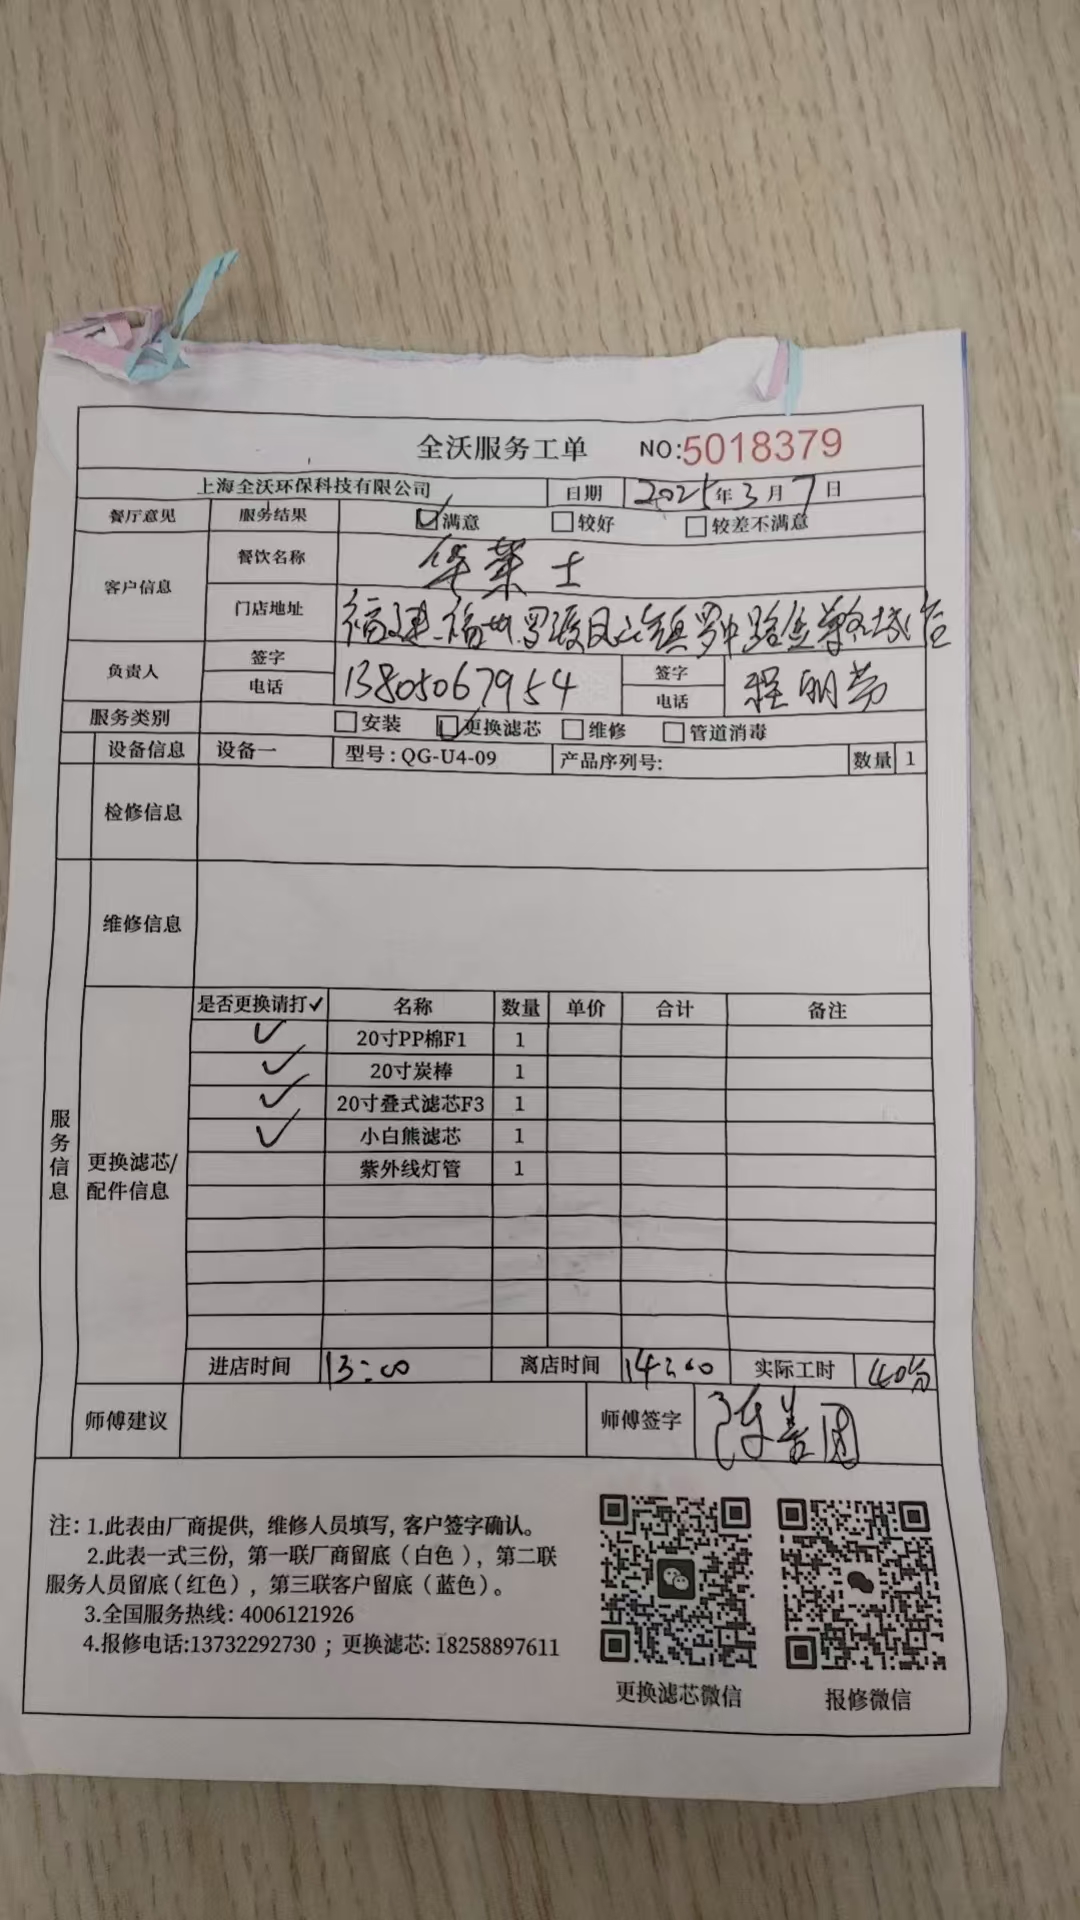 全沃服务工单 NO:5018379
上海全沃环保科技有限公司 日期 2025年3月7日
餐厅意见 服务结果 ☑满意 □较好 □较差不满意
客户信息 餐饮名称 华莱士
门店地址 福建福州罗源凤山镇罗中路
负责人 签字 签字
电话 13805067954 电话 程明
服务类别 □安装 ☑更换滤芯 □维修 □管道消毒
设备信息 设备一 型号:QG-U4-09 产品序列号: 数量 1
检修信息
维修信息
服务信息
更换滤芯/配件信息
是否更换请打✓ 名称 数量 单价 合计 备注
✓ 20寸PP棉F1 1
✓ 20寸炭棒 1
✓ 20寸叠式滤芯F3 1
✓ 小白熊滤芯 1
紫外线灯管 1
进店时间 13:00 离店时间 14:00 实际工时 40分
师傅建议 师傅签字 陈善团
注: 1.此表由厂商提供, 维修人员填写, 客户签字确认。
2.此表一式三份, 第一联厂商留底(白色), 第二联
服务人员留底(红色), 第三联客户留底(蓝色)。
3.全国服务热线: 4006121926
4.报修电话:13732292730 ; 更换滤芯: 18258897611
更换滤芯微信 报修微信